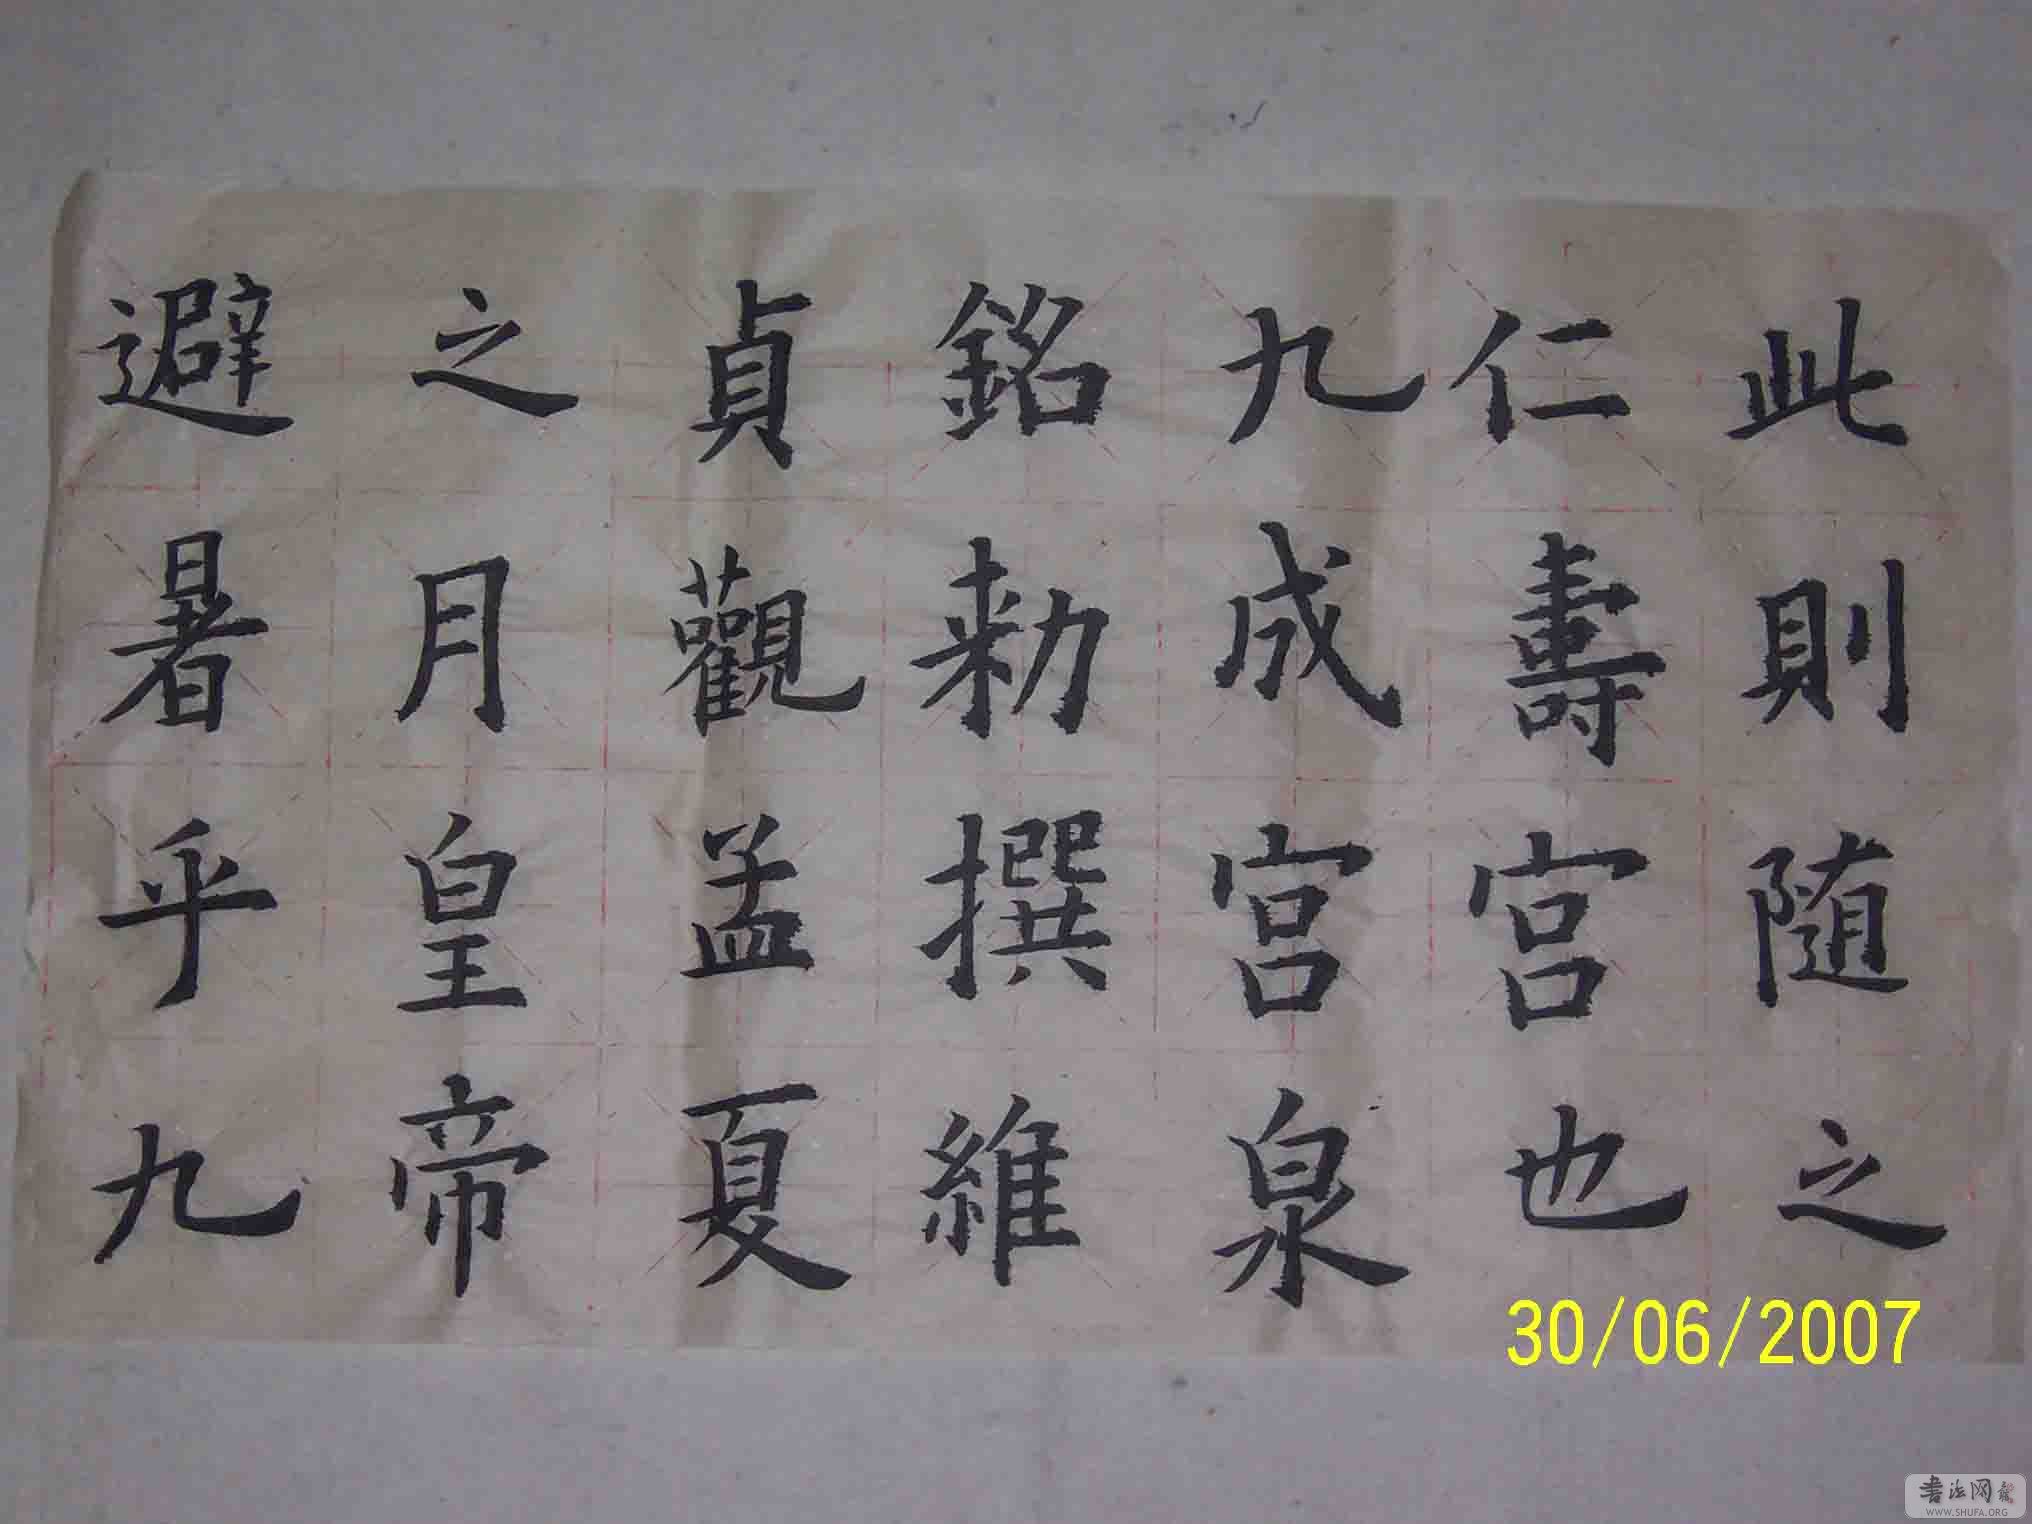 此則随之
仁壽宮也
九成宮泉
銘勑撰維
貞觀孟夏
之月皇帝
避暑乎九
30/06/2007
書法网
WWW.SHUFA.ORG